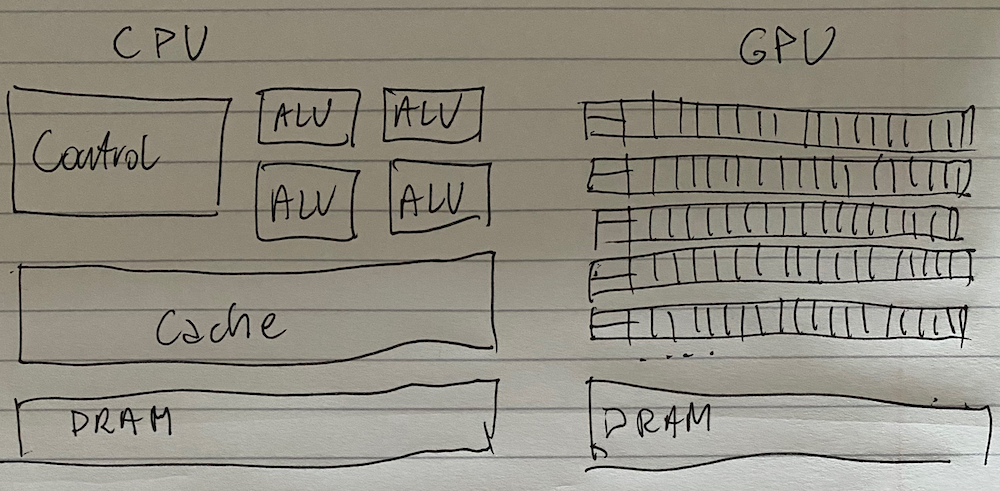 CPU
GPU
Control
ALU
ALU
ALU
ALU
Cache
DRAM
DRAM